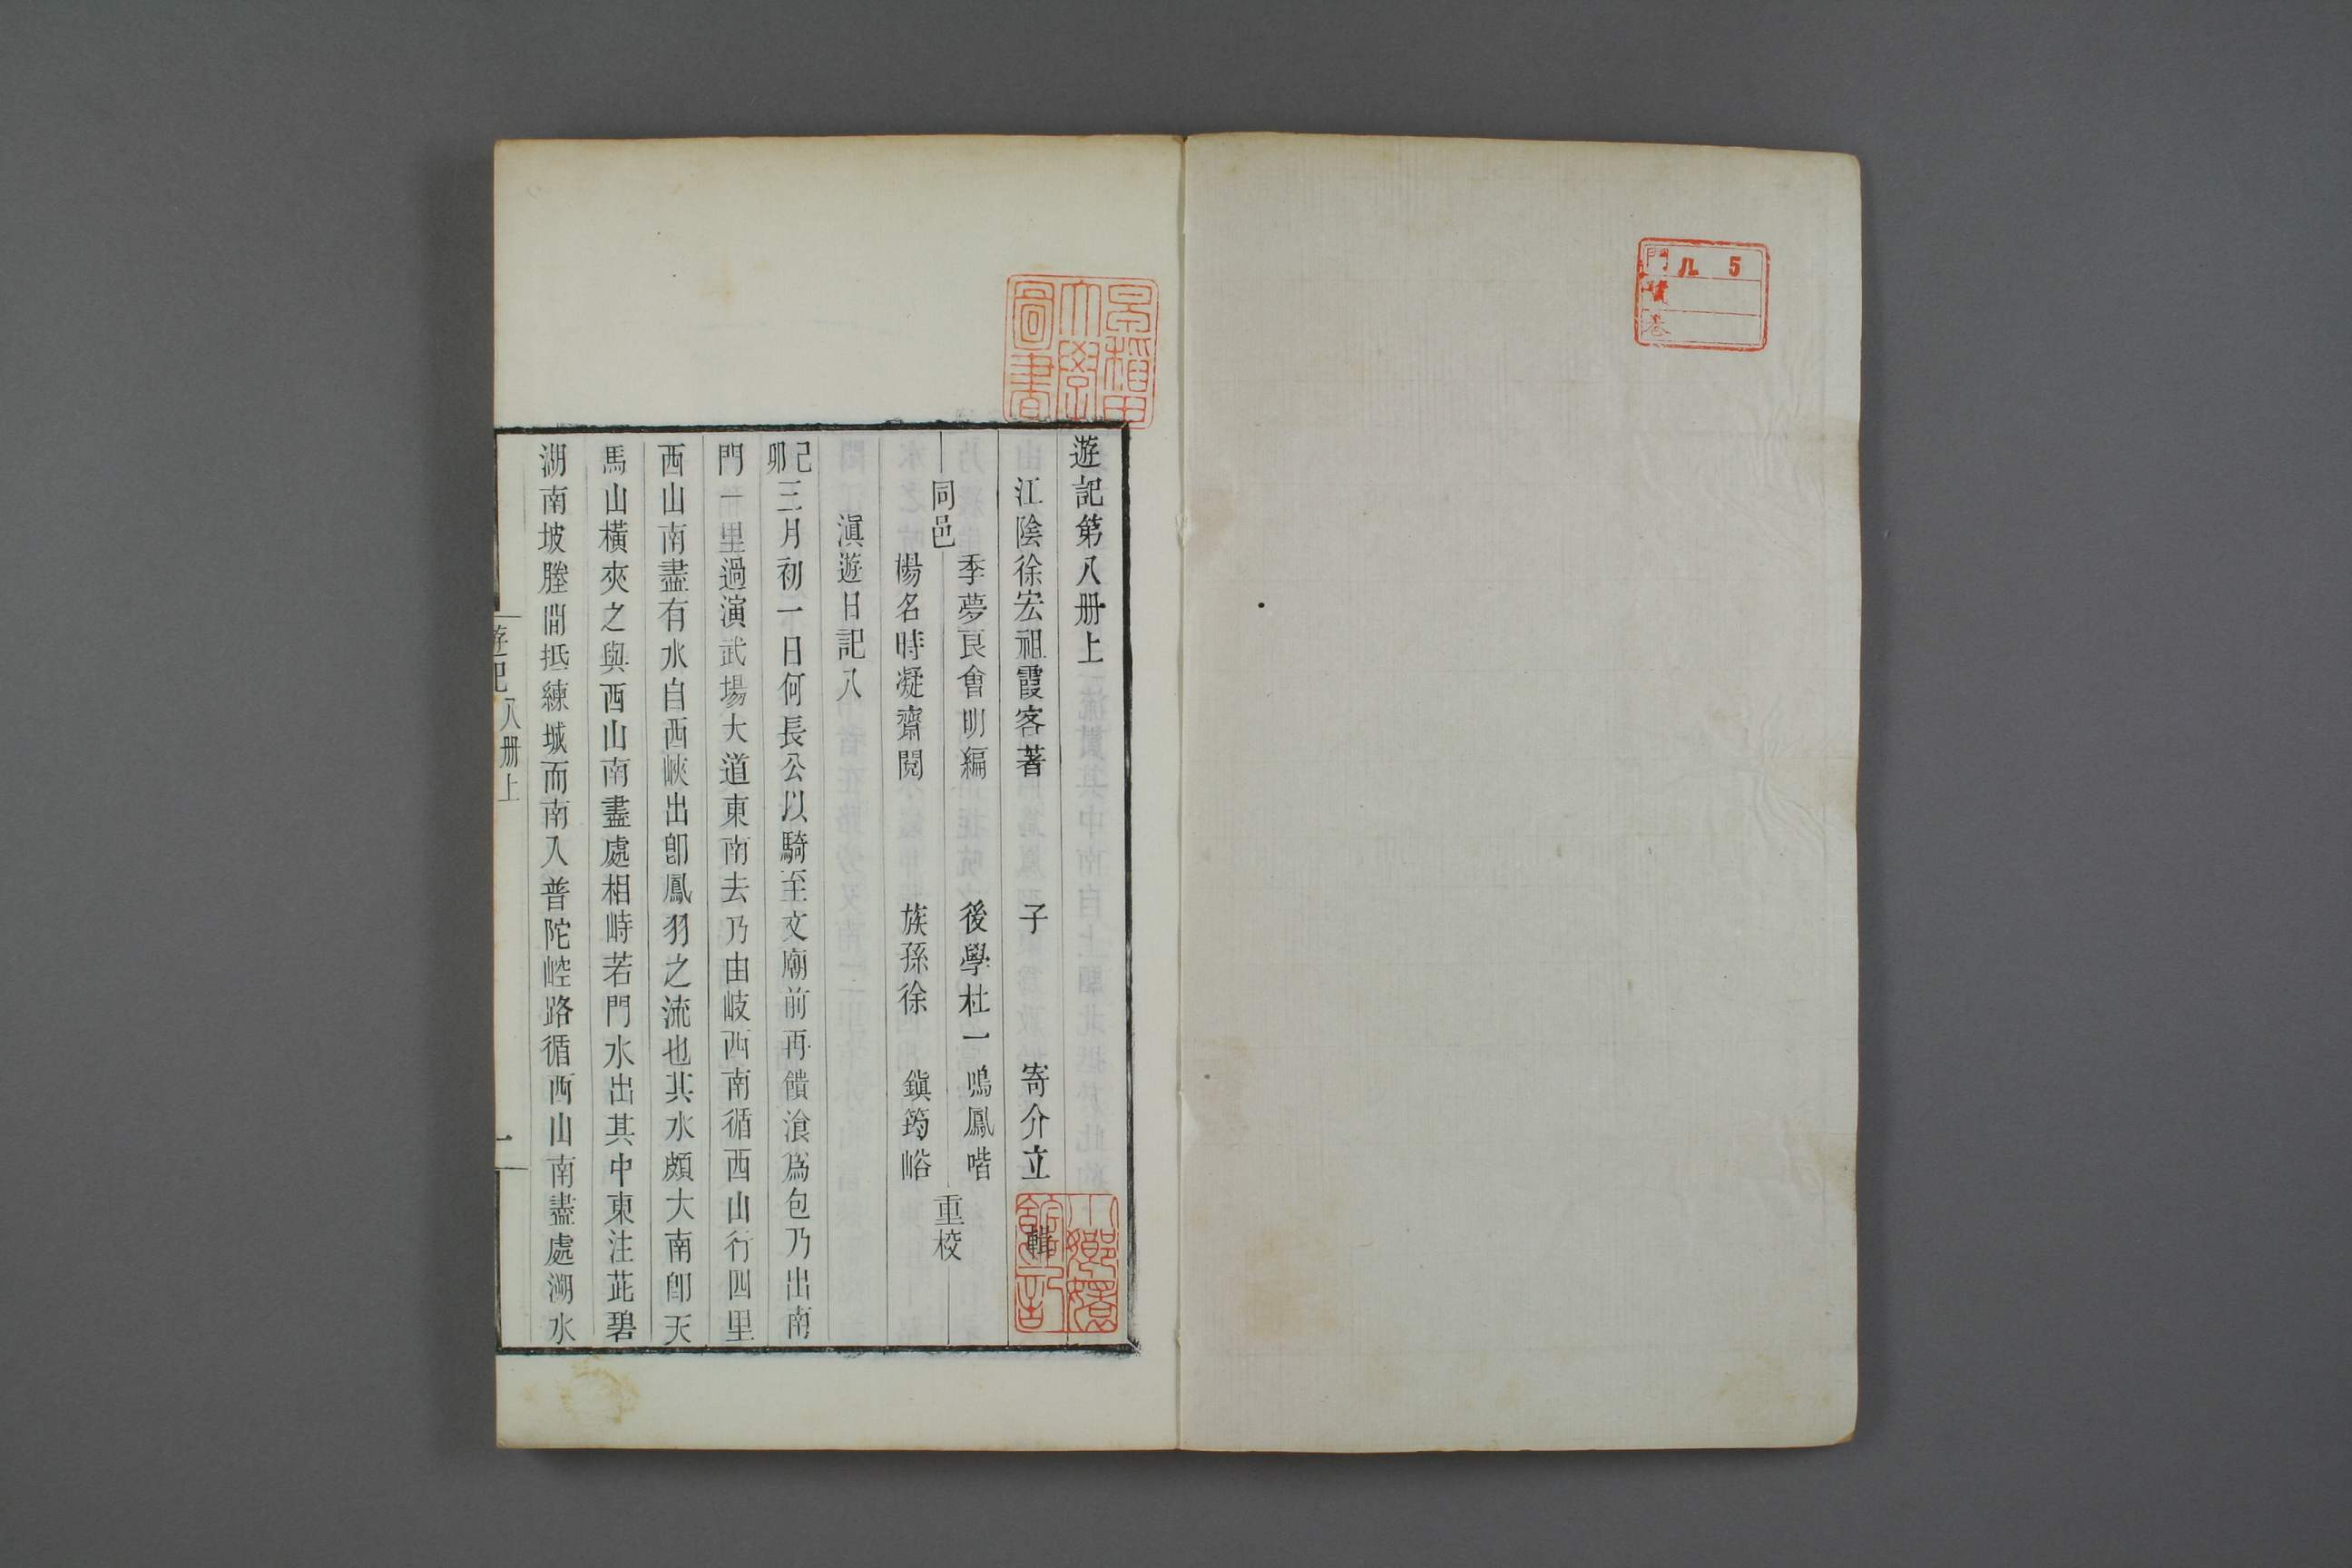 門 ル 5
號
巻
早稲田
大學
圖書
遊記第八册上
江陰徐宏祖霞客著 子 寄介立 輯
同邑
季夢良會明編 後學杜一鳴鳳喈
楊名時凝齋閱 族孫徐 鎮筠峪
重校
滇遊日記八
己卯三月初一日何長公以騎至文廟前再饋飡爲包乃出南
門一里過演武場大道東南去乃由岐西南循西山行四里
西山南盡有水自西峽出卽鳳羽之流也其水頗大南卽天
馬山橫夾之與西山南盡處相峙若門水出其中東注茈碧
湖南坡塍間抵練城而南入普陀崆路循西山南盡處溯水
遊記 八册上 一